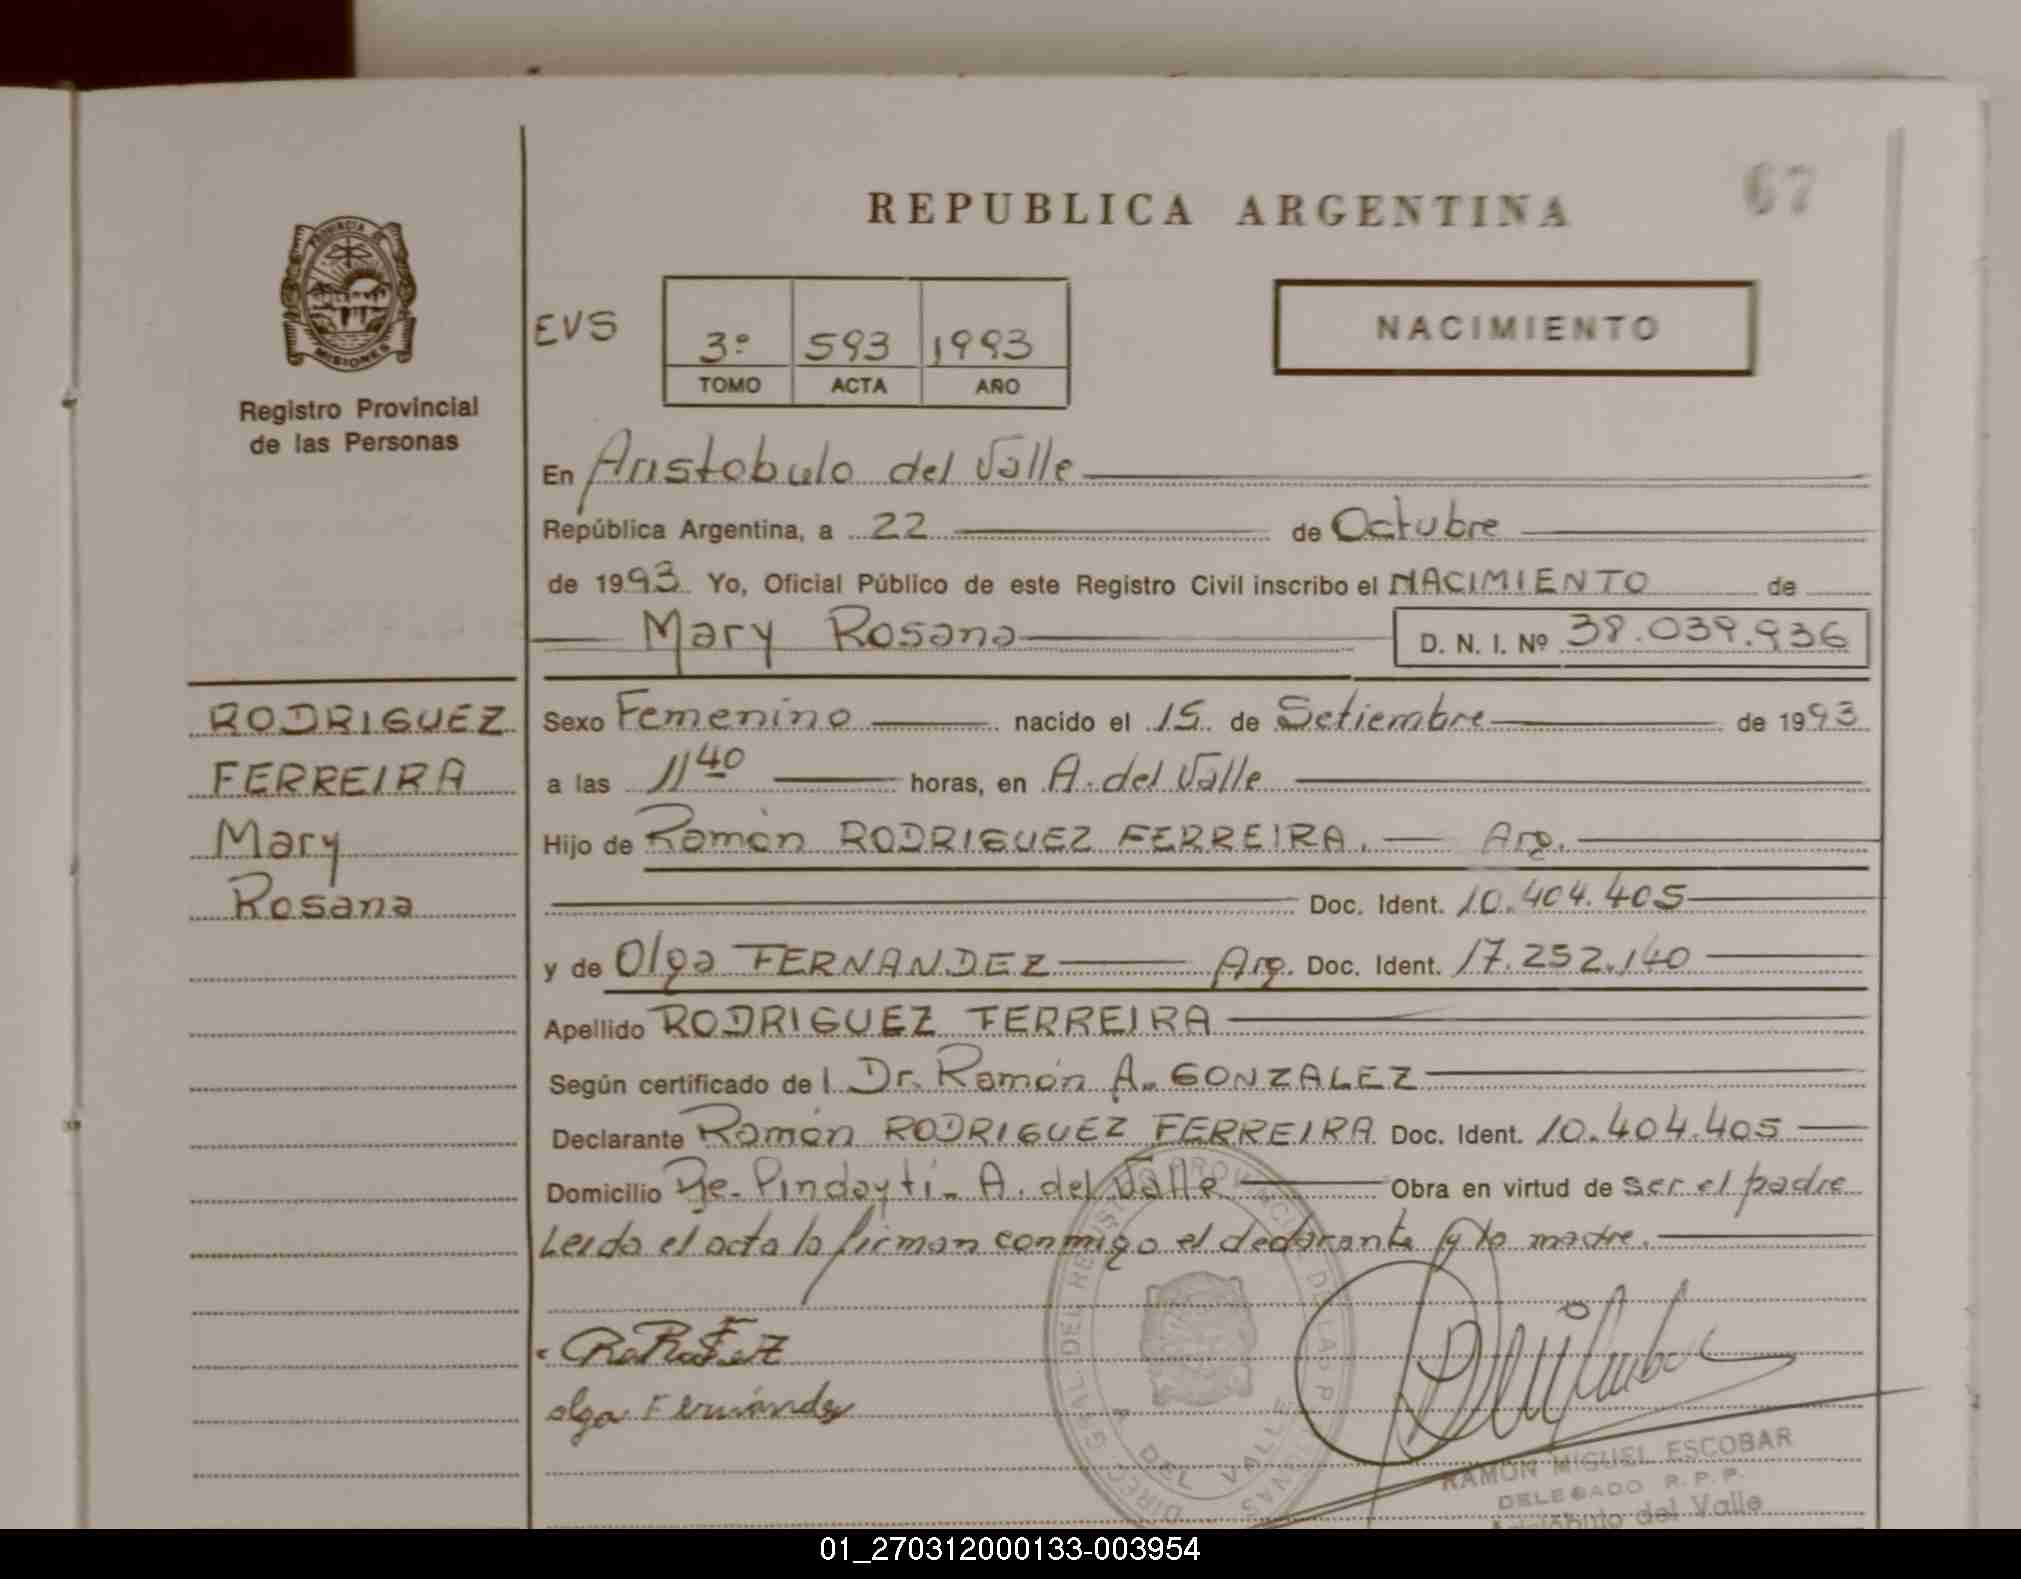 67
REPUBLICA ARGENTINA
PROVINCIA DE
MISIONES
Registro Provincial
de las Personas
EVS
3º 593 1993
TOMO ACTA AÑO
NACIMIENTO
En Aristobulo del Valle
República Argentina, a 22 de Octubre
de 1993 Yo, Oficial Público de este Registro Civil inscribo el NACIMIENTO de
Mary Rosana D. N. I. Nº 38.039.936
RODRIGUEZ
FERREIRA
Mary
Rosana
Sexo Femenino nacido el 15 de Setiembre de 1993
a las 11 40 horas, en A. del Valle
Hijo de Ramón RODRIGUEZ FERREIRA. Arg.
Doc. Ident. 10.404.405
y de Olga FERNANDEZ Arg. Doc. Ident. 17.252.140
Apellido RODRIGUEZ FERREIRA
Según certificado del Dr. Ramón A. GONZALEZ
Declarante Ramón RODRIGUEZ FERREIRA Doc. Ident. 10.404.405
Domicilio Pje. Pindayti. A. del Valle Obra en virtud de ser el padre
Leida el acta la firman conmigo el declarante y la madre.
olga Fernández
RAMON MIGUEL ESCOBAR
DELEGADO R. P. P.
Aristóbulo del Valle
01_270312000133-003954